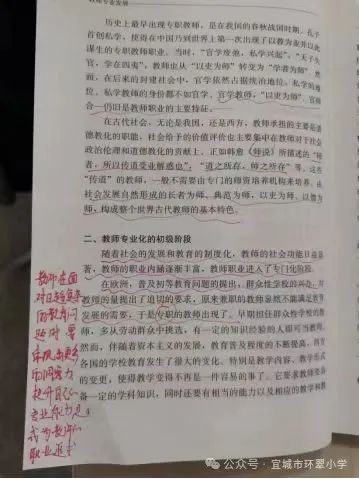 教师专业发展
历史上最早出现专职教师，是在我国的春秋战国时期。孔子
首创私学，使得在中国乃到世界上第一次出现了以教为业并以此
谋生的专职教师职业。当时，“官学废弛，私学兴起”，“天子失
官，学在四夷”，教师也从“以吏为师”转变为“学者为师”。然
而，在后来的封建社会中，官学依然占据统治地位，私学的地
位、私学教师的身份都不如官学。官学教师，“以吏为师”、官师
合一仍旧是教师职业的主要特征。
在古代社会，无论是我国，还是西方，教师承担的主要是道
德教化的职能，社会给予的价值评价也主要集中在教师对于社会
政治伦理和道德教化的贡献上。正如韩愈《师说》所描述的“师
者，所以传道受业解惑也”；“道之所存，师之所存”等。这些
“传道”的教师，一般不需要由专门的师资培养机构来培养。由
社会发展自然形成的长者为师、典范为师，以吏为师、以僧为
师，构成整个世界古代教师的基本特色。
二、教师专业化的初级阶段
随着社会的发展和教育的制度化，教师的社会功能日益显
著，教师的职业内涵逐渐丰富，教师职业进入了专门化阶段。
在欧洲，普及初等教育问题的提出，群众性学校的兴办，对
教师的量提出了迫切的要求，原来兼职的教师显然不能满足教育
发展的需要，于是专职的教师出现了。早期担任群众性学校的教
师，多从劳动群众中挑选，有一定的知识经验的人即可当教师。
然而，伴随着资本主义的发展，教育普及程度的不断提高，西方
各国的学校教育发生了很大的变化。特别是教学内容、教学形式
的变更，使得教学变得不再是一件容易的事了。它要求教师要具
备一定的学科知识，同时还要有相当的能力以及相应的教学和教
4
教师在面
对日趋复杂
的教育问
题时，要
提升自己
专业能力
成为教师
职业追求
公众号·宜城市环翠小学